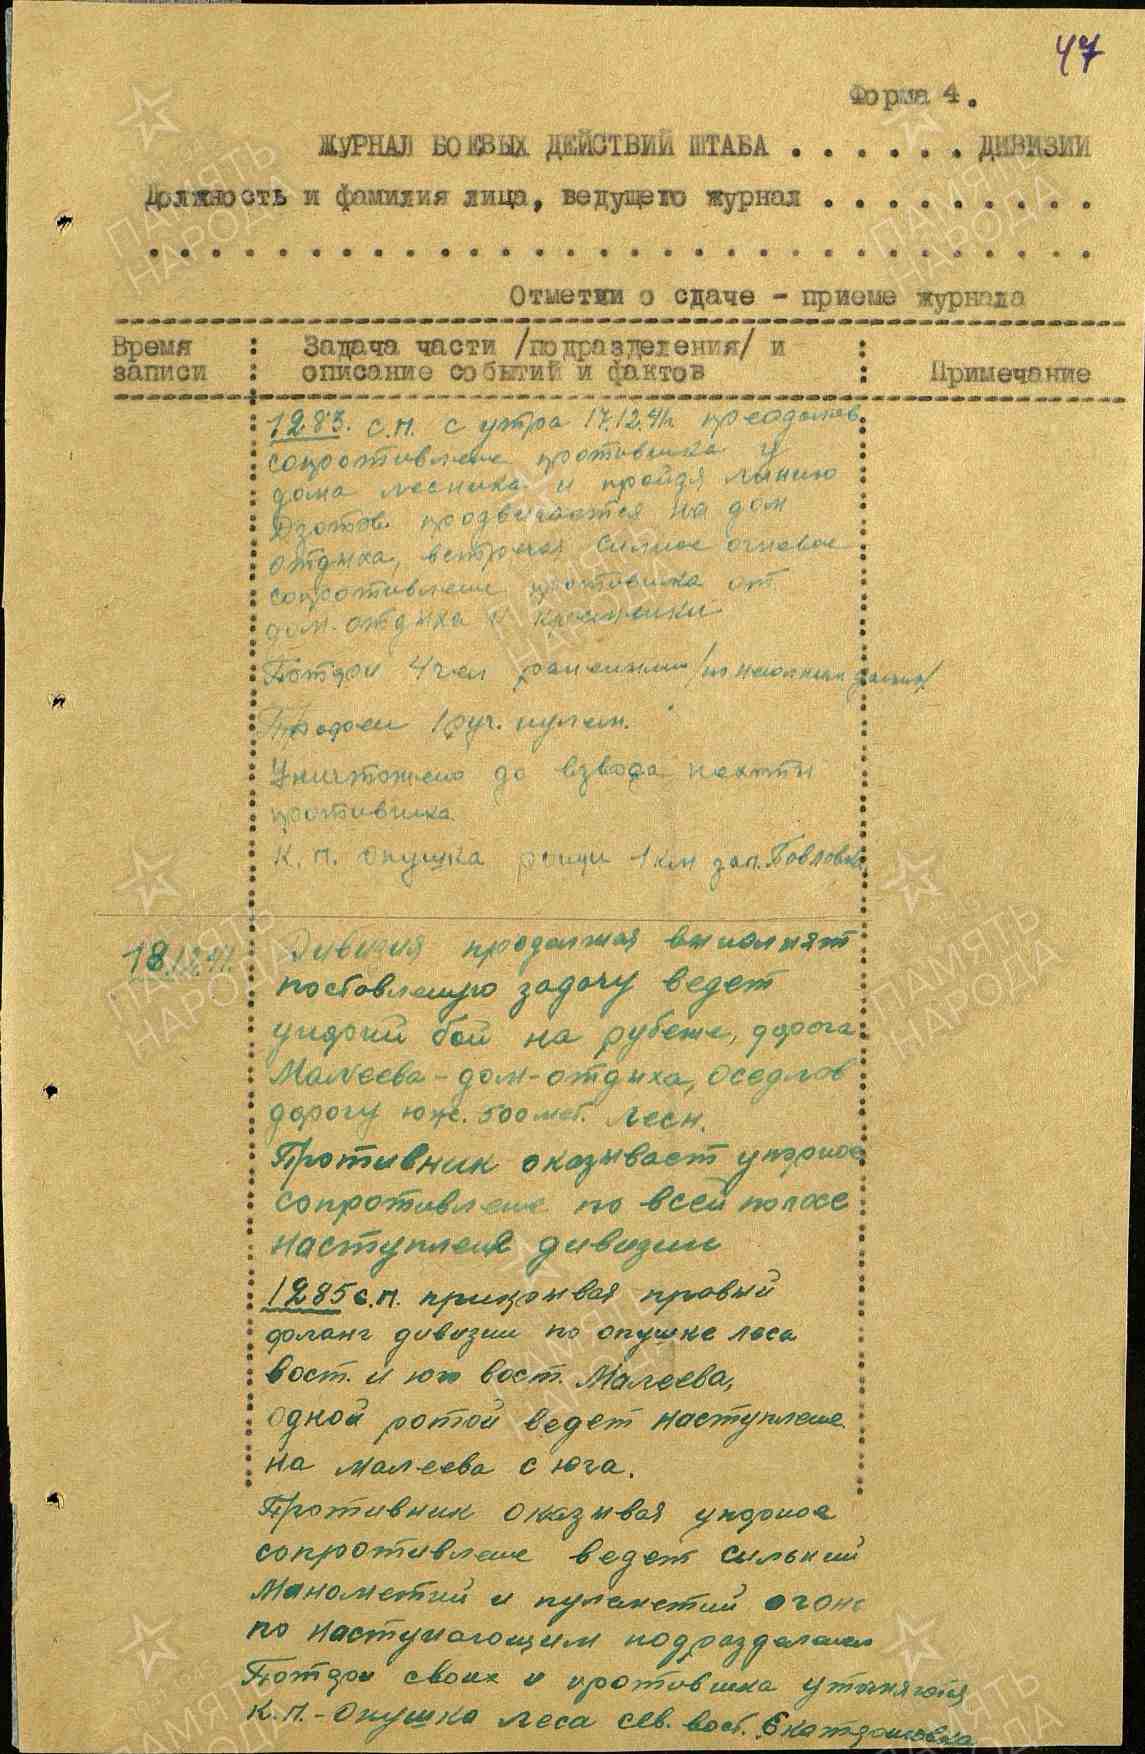 47
Форма 4.
ЖУРНАЛ БОЕВЫХ ДЕЙСТВИЙ ШТАБА . . . . . . ДИВИЗИИ
Должность и фамилия лица, ведущего журнал . . . . . . . . .
Отметки о сдаче - приеме журнала
Время записи
Задача части /подразделения/ и описание событий и фактов
Примечание
1283. с.п. с утра 17.12.41г. преодолев
сопротивление противника у
дома лесника и пройдя линию
Дзотов продвигается на дом
отдыха, встречая сильное огневое
сопротивление противника от
дом-отдыха и
Потери 4 чел ранеными /по неполным данным/
1 руч. пулем.
Уничтожено до взвода пехоты
противника
К.П. опушка рощи 1 км зап. Павловка
18.12.41.
Дивизия продолжая выполнят
поставленую задачу ведет
упорный бой на рубеже, дорога
Малеева - дом-отдыха, оседлав
дорогу юж. 500 мет. лесн.
Противник оказывает упорное
сопротивление по всей полосе
наступления дивизии
1285 с.п. прикрывая правый
фланг дивизии по опушке леса
вост. и юго вост. Малеева,
одной ротой ведет наступление
на Малеева с юга.
Противник оказывая упорное
сопротивление ведет сильный
минометный и пулеметный огонь
по наступающим подразделениям
Потери своих и противника уточняются
К.П. - Опушка леса сев. вост. Екатериновка
ПАМЯТЬ НАРОДА